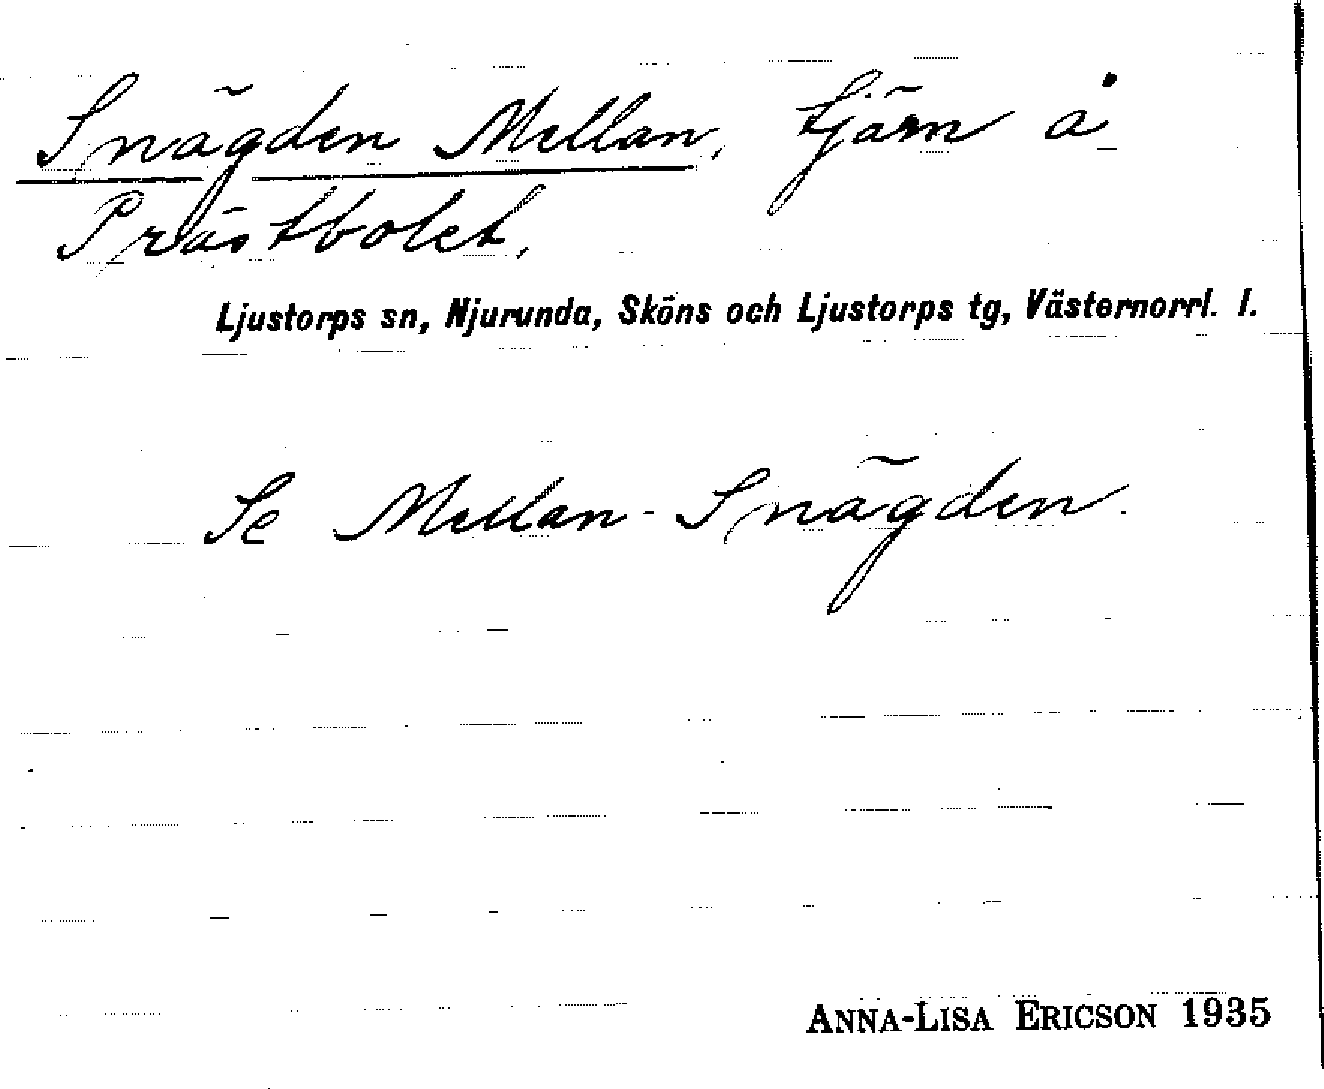 Snägden Mellan, tjärn å
Prästbolet.
Ljustorps sn, Njurunda, Sköns och Ljustorps tg, Västernorrl. l.
Se Mellan-Snägden.
ANNA-LISA ERICSON 1935